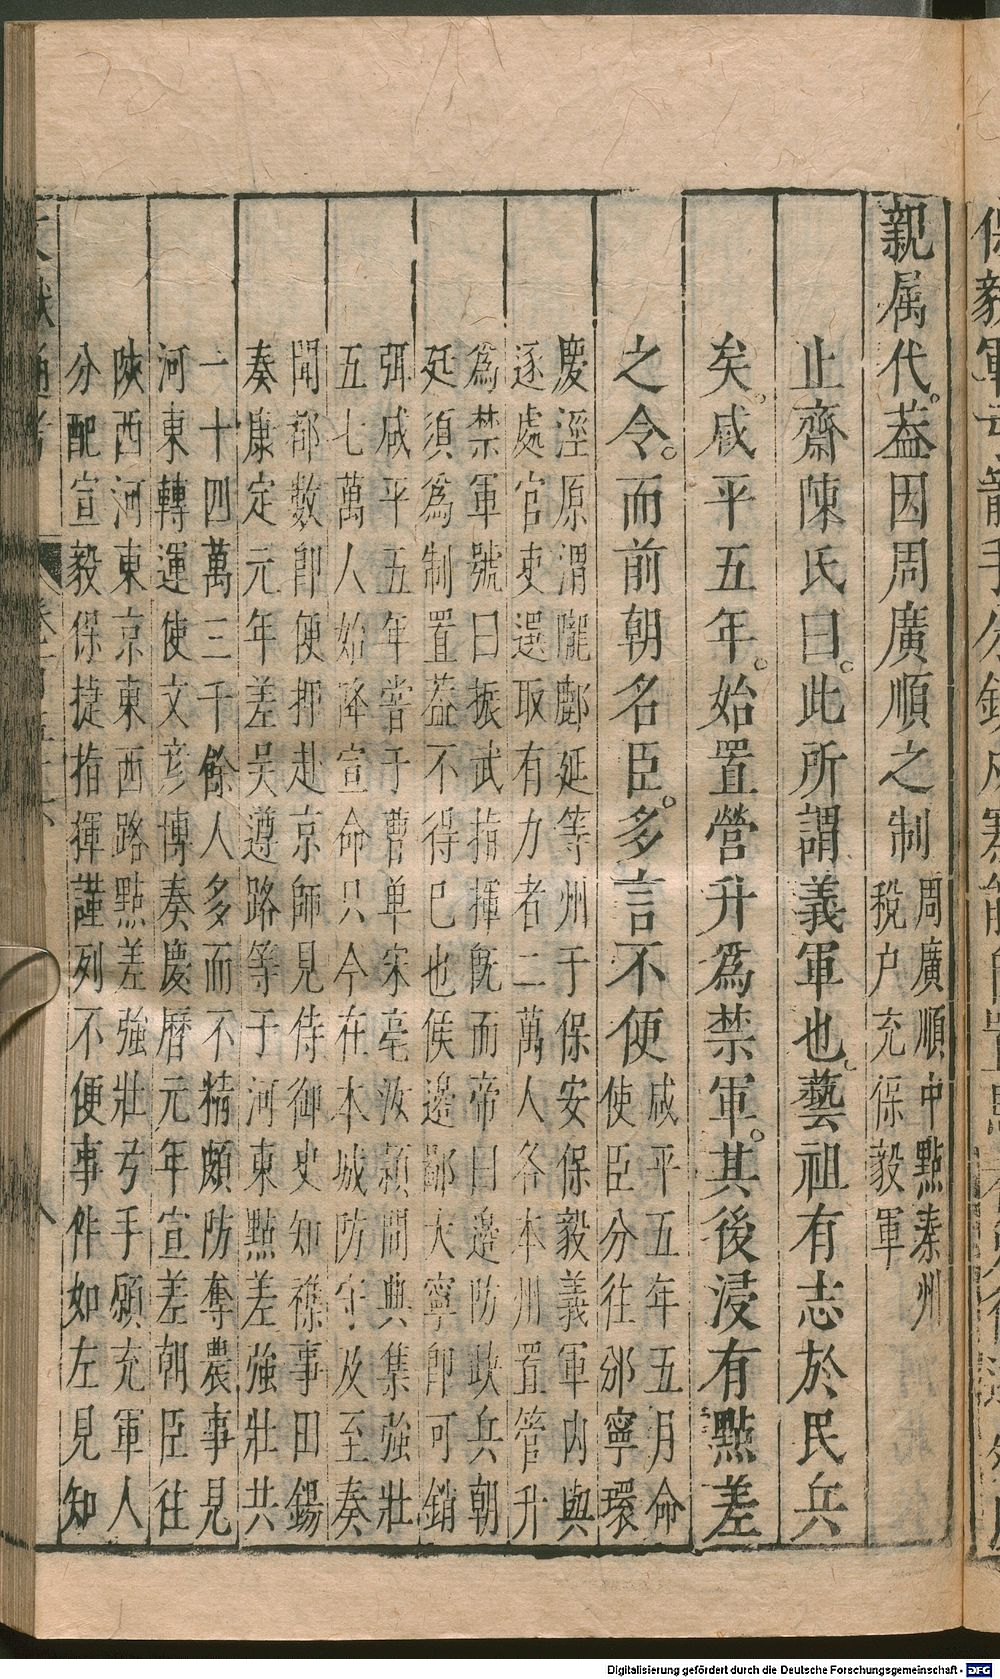 親属代。葢因周廣順之制周廣順中點秦州
稅户充保毅軍
止齋陳氏曰。此所謂義軍也。藝祖有志於民兵
矣。咸平五年。始置營升爲禁軍。其後浸有點差
之令。而前朝名臣。多言不便咸平五年五月命
使臣分往邠寧環
慶涇原渭隴鄜延等州于保安保毅義軍内與
逐處官吏選取有力者二萬人各本州置管升
爲禁軍號曰振武指揮既而帝曰邊防缺兵朝
廷須爲制置葢不得已也候邊鄙大寧即可銷
弭咸平五年嘗于曹单宋亳汝潁間典集強壯
五七萬人始降宣命只令在本城防守及至奏
聞都數即便押赴京師見侍御史知襍事田錫
奏康定元年差吳遵路等于河東點差強壯共
一十四萬三千餘人多而不精頗防奪農事見
河東轉運使文彦博奏慶曆元年宣差朝臣往
陜西河東京東西路點差強壯弓手願充軍人
分配宣毅保捷指揮謹列不便事件如左見知
Digitalisierung gefördert durch die Deutsche Forschungsgemeinschaft - DFG